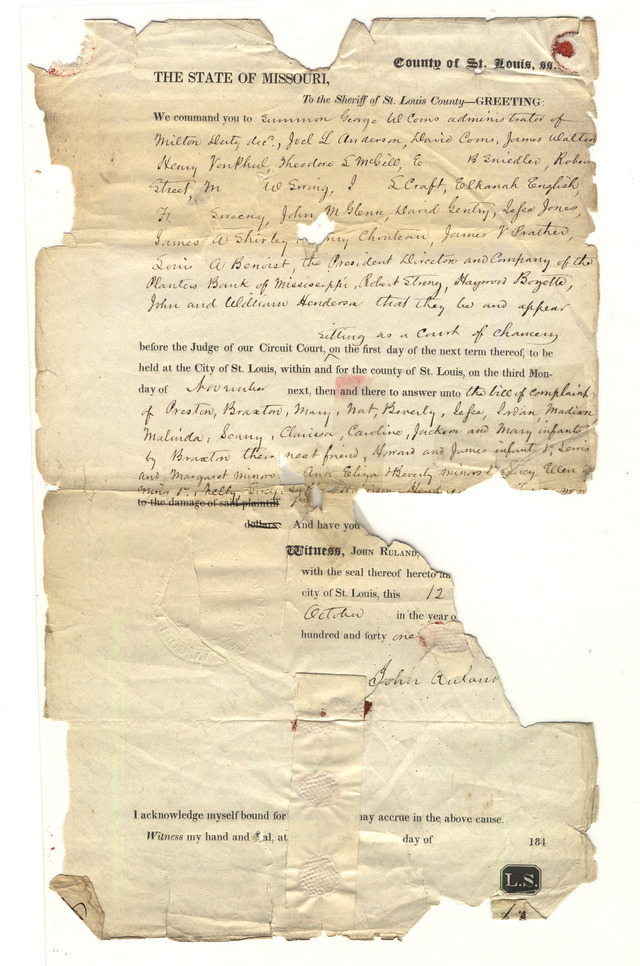 County of St. Louis, ss.
THE STATE OF MISSOURI,
To the Sheriff of St. Louis County—GREETING:
We command you to summon George W Coons administrator of
Milton Duty decd., Joel L Anderson, David Coons, James Walton
Henry Vonphul, Theodore L McGill, E B Sniedler, Robert
Street, M W Ewing, I L Craft, Elkanah English,
H. Sweeny, John McGlenn, David Gentry, Jesse Jones,
James A Shirley, Chouteau, James V Prather,
Louis A Benoist, the President Directors and Company of the
Planters Bank of Mississippi, Robert Strong, Haywood Bozette,
John and William Henderson that they be and appear
sitting as a Court of Chancery
before the Judge of our Circuit Court, on the first day of the next term thereof, to be
held at the City of St. Louis, within and for the county of St. Louis, on the third Mon-
day of November next, then and there to answer unto the bill of complaint
of Preston, Braxton, Mary, Nat, Beverly, Jesse, Jordan, Madison
Malinda, Sonny, Clarissa, Caroline, Jackson and Mary infants
by Braxton their next friend, Howard and James infants, Lewis
and Margaret minors Ann Eliza & Beverly minors Lucy Ellen
to the damage of said plaintiff
dollars. And have you
Witness, JOHN RULAND,
with the seal thereof hereto
city of St. Louis, this 12
October in the year o
hundred and forty one
John Ruland
I acknowledge myself bound for may accrue in the above cause.
Witness my hand and al, at day of 184
L.S.